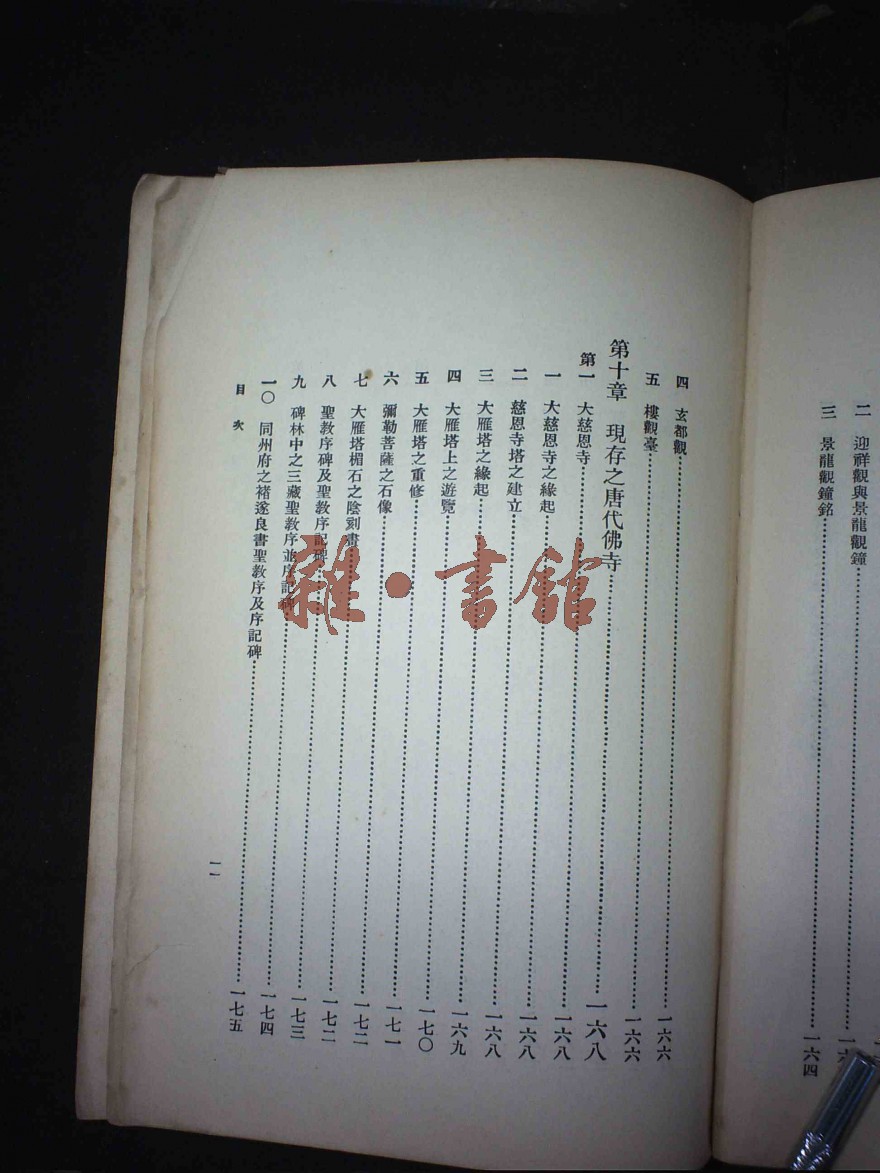 二 迎祥觀與景龍觀鐘……一六
三 景龍觀鐘銘……一六四
四 玄都觀……一六六
五 樓觀臺……一六六
第十章 現存之唐代佛寺……一六八
第一 大慈恩寺……一六八
一 大慈恩寺之緣起……一六八
二 慈恩寺塔之建立……一六八
三 大雁塔之緣起……一六九
四 大雁塔上之遊覽……一七〇
五 大雁塔之重修……一七一
六 彌勒菩薩之石像……一七二
七 大雁塔楣石之陰刻畫……一七二
八 聖教序碑及聖教序記碑……一七三
九 碑林中之三藏聖教序並序記碑……一七四
一〇 同州府之褚遂良書聖教序及序記碑……一七五
目次
一一
雜·書館